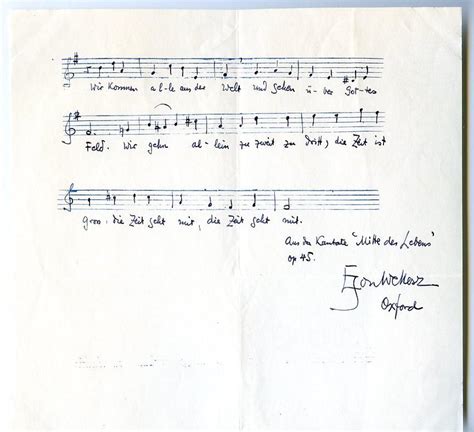 Wir kommen al-le aus der Welt und gehen ü-ber Got-tes
Feld. Wir gehn al-lein zu zweit zu dritt, die Zeit ist
gros. die Zeit geht mit, die Zeit geht mit.
Aus der Kantate "Mitte des Lebens"
op 45.
Egon Wellesz
Oxford